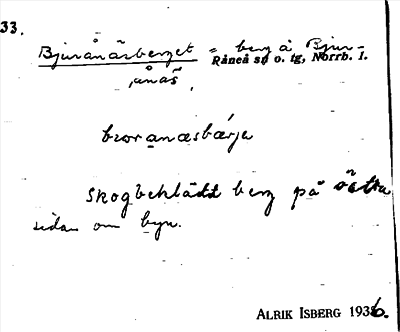 33.
Bjurånäsberget = berg å Bjur-
Råneå sn o. tg, Norrb. l.
ånäs
skogbeklädd berg på östra
sidan om byn.
ALRIK ISBERG 1936.